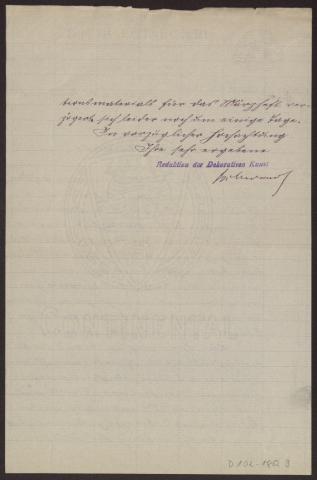 tionsmaterials für das Märzheft ver-
zögert sich leider noch um einige Tage.
In vorzüglicher Hochachtung
Ihre sehr ergebene
Redaktion der Dekorativen Kunst
CONTINENTAL